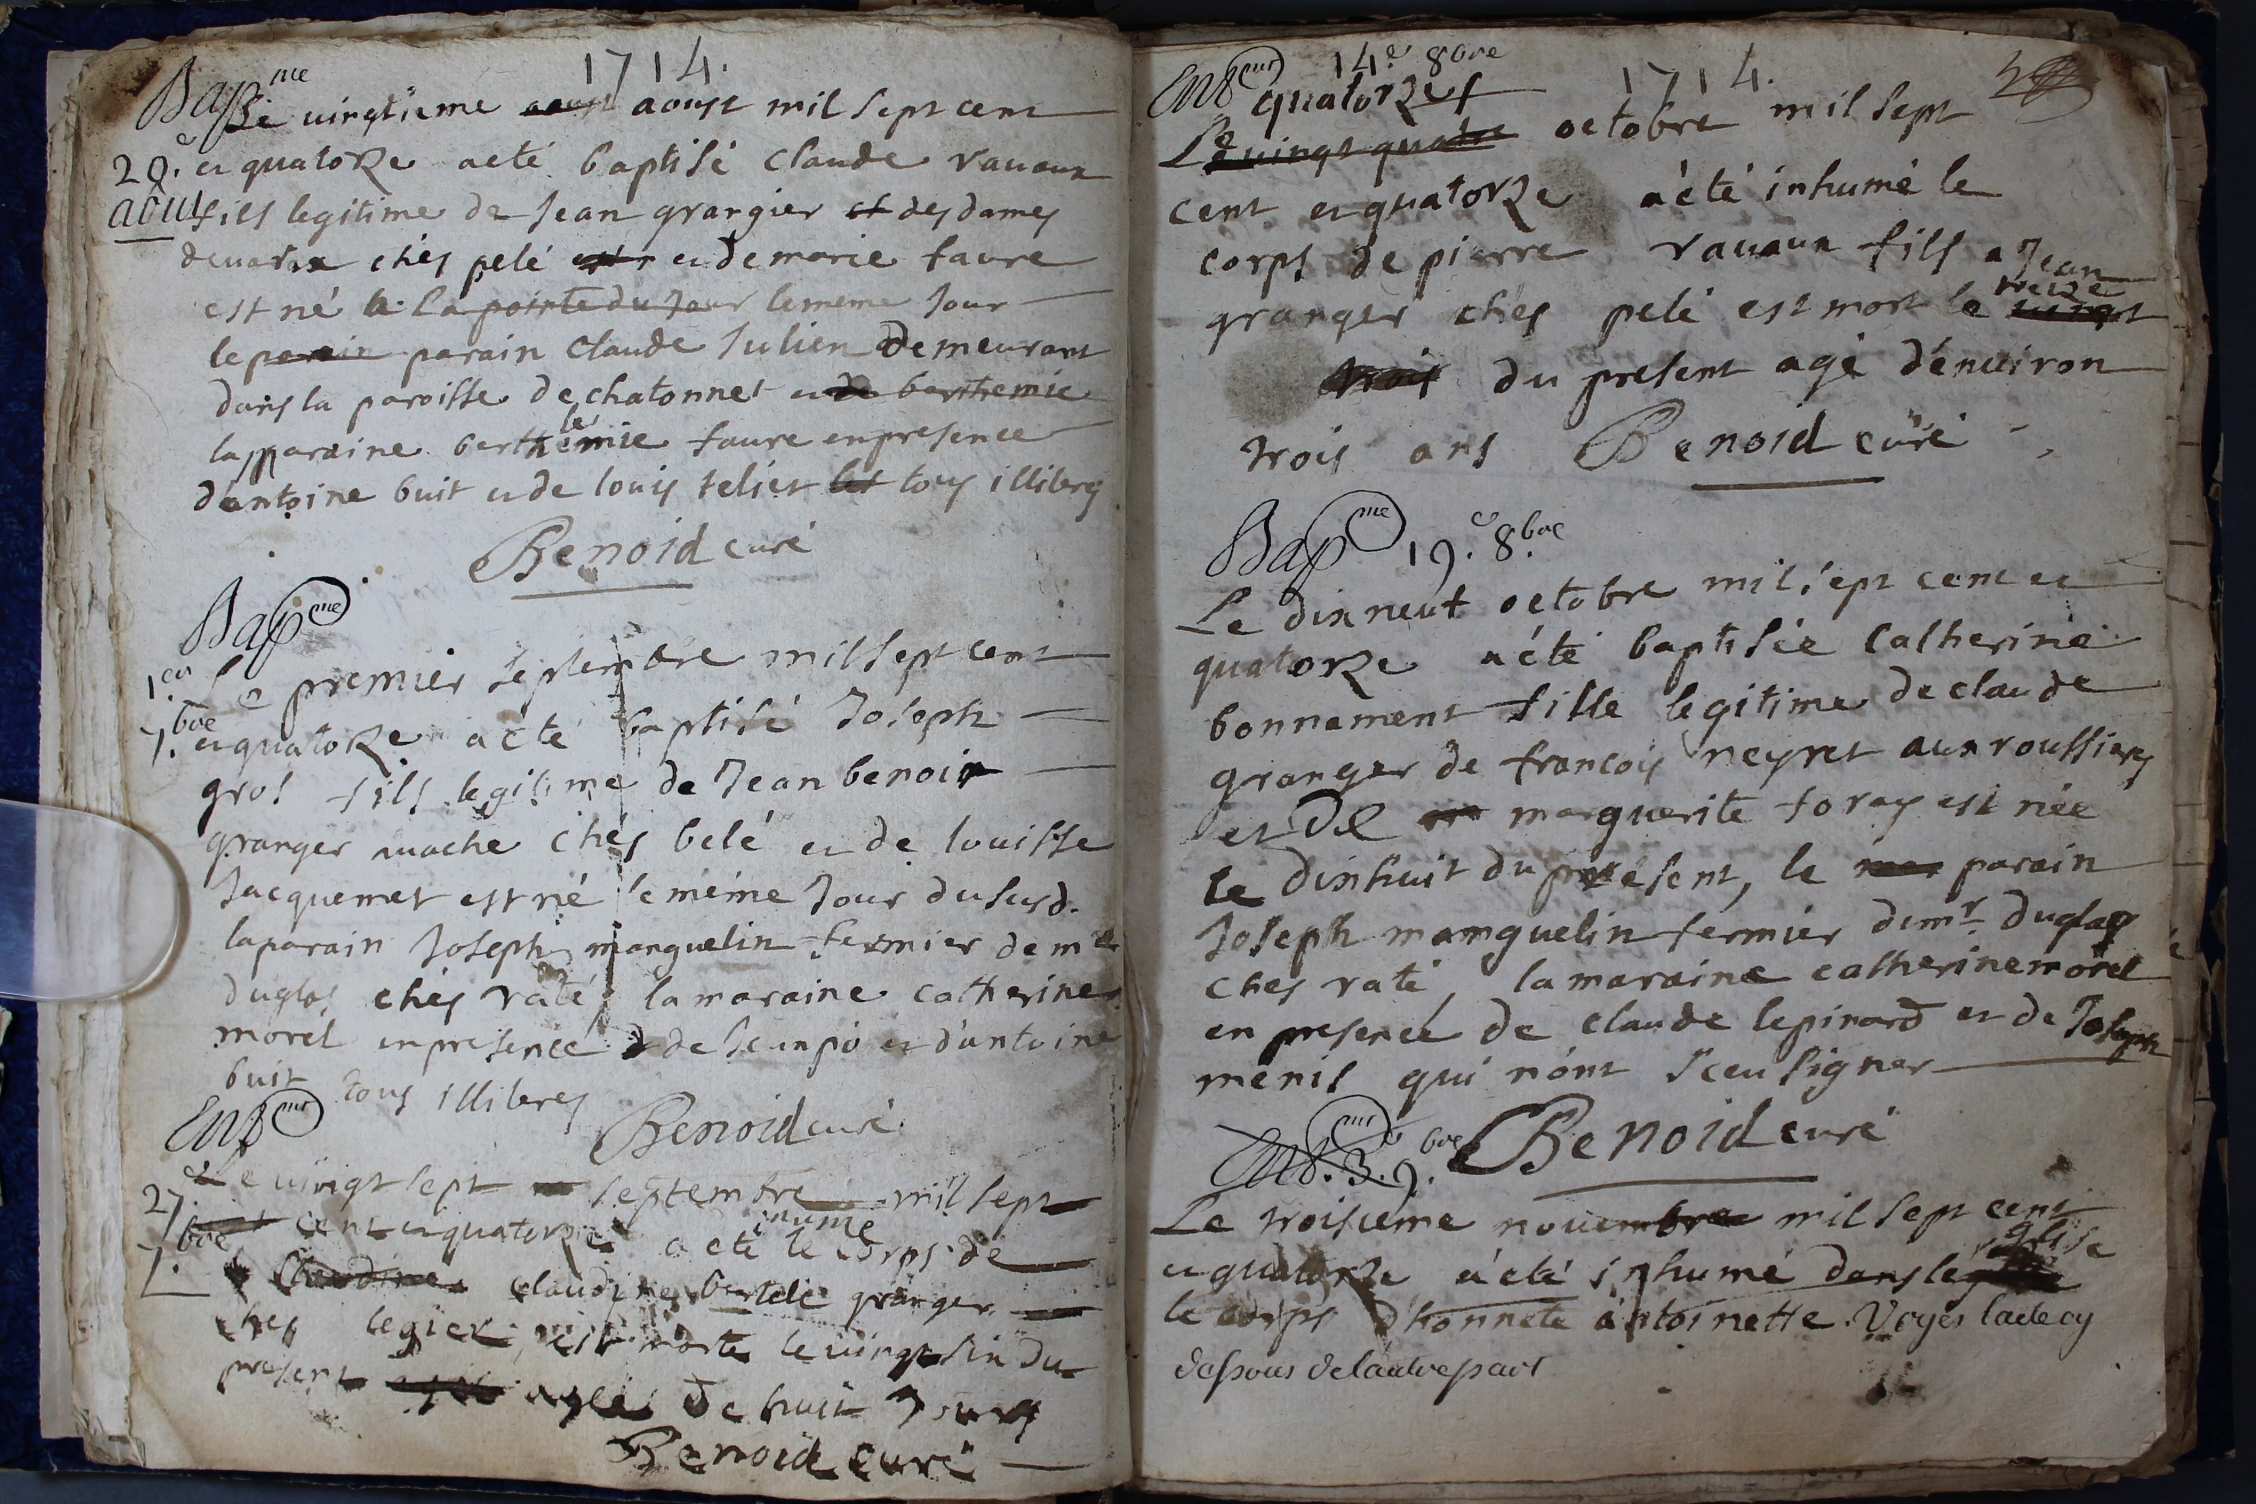 1714.
Bapme
Le vingtieme aoust mil sept cent
20.e et quatorze a eté baptisé claude ravaux
aout fils legitime de Jean grangier des dames
chés pelé et de marie favre
est né a la pointe du jour le meme Jour
le parain parain claude Julien demeurant
dans la paroisse de chatonnet et de berthemie
la maraine berthelemie faure en presence
d'antoine buit et de louis telier tous illiterés
Benoid curé
Bapme
1er Le premier septembre mil sept cent
7.bre et quatorze a eté baptisé Joseph
gros fils legitime de Jean benoit
granger vache chés belé et de louisse
Jacquemet est né le méme Jour du susd.
la parain Joseph manguelin fermier de mr
duglas chés raté, la maraine catherine
morel en presence de Jean pió et d'antoine
buit tous illiteres
Benoid curé
Entmt
27. Le vingt sept septembre mil sept
cent et quatorze a eté inumé le corps de
7.bre claudine claudine bertelé granger
chés legier, est morte le vingt sin du
present agée de huit Jours
Benoid curé
1714.
Entmt 14.e 8bre
quatorze
Le vingt quatre octobre mil sept
cent et quatorze a eté inhumé le
corps de pierre ravaux fils a Jean
granger chés pelé est mort le treize vingt
trois du present agé d'environ
trois ans Benoid curé
Bapme 19.e 8.bre
Le dix neuf octobre mil sept cent et
quatorze a été baptisée Catherine
bonnement fille legitime de claude
granger de francois neyret aux roussieres
et de marguerite foray est née
le dixhuit du present, le parain
Joseph mamguelin fermier de mr. duglas
chés raté, la maraine catherine morel
en presence de claude lepinard et de Joseph
menis qui n'ont sceu signer
Benoid curé
Ent.mt 3.e 9.bre
Le troisieme novembre mil sept cent
et quatorze a été inhumé dans léglise
le corps d'honnete antoinette. Voyés l'acte cy
dessous de l'autre part